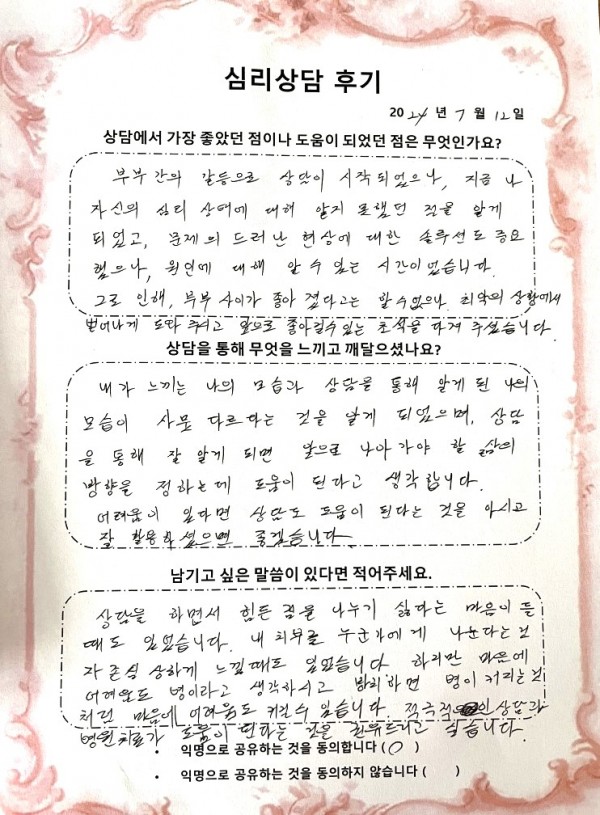 심리상담 후기
2024 년 7 월 12 일
상담에서 가장 좋았던 점이나 도움이 되었던 점은 무엇인가요?
부부 간의 갈등으로 상담이 시작되었으나, 지금 나
자신의 심리 상태에 대해 알지 못했던 것을 알게
되었고, 문제의 드러난 현상에 대한 솔루션도 중요
했으나, 원인에 대해 알 수 있는 시간이었습니다.
그로 인해, 부부 사이가 좋아 졌다고는 할 수 없으나 최악의 상황에서
벗어나게 도와 주시고 앞으로 좋아질수 있는 초석을 다져 주셨습니다.
상담을 통해 무엇을 느끼고 깨달으셨나요?
내가 느끼는 나의 모습과 상담을 통해 알게 된 나의
모습이 사뭇 다르다는 것을 알게 되었으며, 상담
을 통해 잘 알게 되면 앞으로 나아가야 할 삶의
방향을 정하는데 도움이 된다고 생각합니다.
어려움이 있다면 상담도 도움이 된다는 것을 아시고
잘 활용하셨으면 좋겠습니다.
남기고 싶은 말씀이 있다면 적어주세요.
상담을 하면서 힘든 점을 나누기 싫다는 마음이 들
때도 있었습니다. 내 치부를 누군가에게 나눈다는 것
자존심 상하게 느낄때도 있었습니다 하지만 마음에
어려움도 병이라고 생각하시고 방치하면 병이 커지는 것
처럼 마음에 어려움도 커질수 있습니다. 적극적인 상담과
병원치료가 도움이 된다는 것을 전해드리고 싶습니다.
• 익명으로 공유하는 것을 동의합니다 ( O )
• 익명으로 공유하는 것을 동의하지 않습니다 ( )